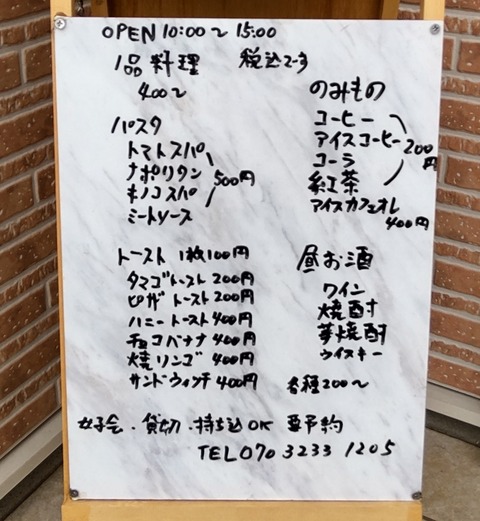 OPEN 10:00〜15:00
1品料理 税込です
400〜
パスタ
トマトスパ
ナポリタン
キノコスパ
ミートソース
500円
のみもの
コーヒー
アイスコーヒー
コーラ
紅茶
200円
アイスカフェオレ
400円
トースト 1枚100円
タマゴトースト 200円
ピザトースト 200円
ハニートースト 400円
チョコバナナ 400円
焼リンゴ 400円
サンドウィッチ 400円
昼お酒
ワイン
焼酎
夢焼酎
ウイスキー
各種200〜
女子会・貸切・持ち込OK 要予約
TEL 070 3233 1205